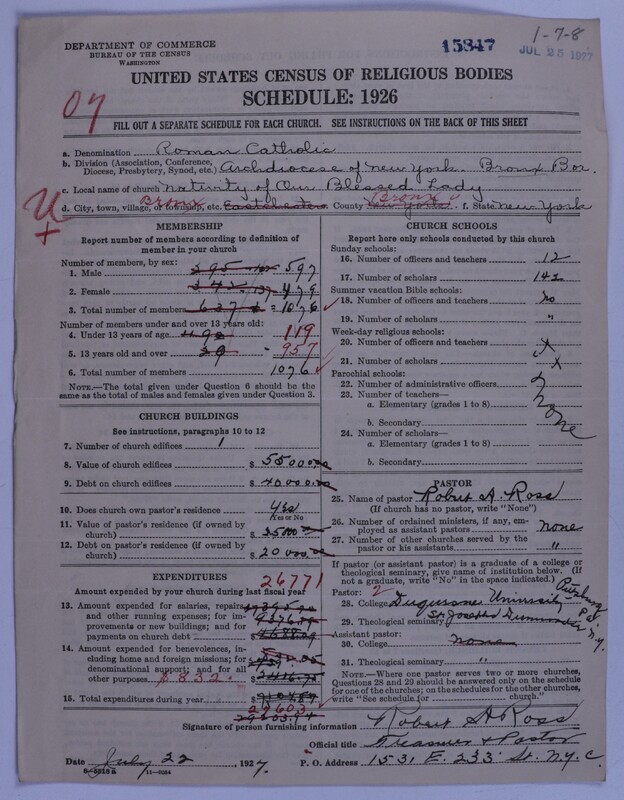 1-7-8
DEPARTMENT OF COMMERCE
BUREAU OF THE CENSUS
WASHINGTON
15847
JUL 25 1927
UNITED STATES CENSUS OF RELIGIOUS BODIES
SCHEDULE: 1926
07
FILL OUT A SEPARATE SCHEDULE FOR EACH CHURCH. SEE INSTRUCTIONS ON THE BACK OF THIS SHEET
a. Denomination Roman Catholic
b. Division (Association, Conference, Diocese, Presbytery, Synod, etc.) Archdiocese of New York. Bronx Bor.
c. Local name of church Nativity of Our Blessed Lady
d. City, town, village, or township, etc. Bronx Eastchester County Bronx New York f. State New York
U
MEMBERSHIP
Report number of members according to definition of member in your church
Number of members, by sex:
1. Male 295 597
2. Female 342 137 479
3. Total number of members 637 = 1076
Number of members under and over 13 years old:
4. Under 13 years of age 119
5. 13 years old and over 957
6. Total number of members 1076
NOTE.—The total given under Question 6 should be the same as the total of males and females given under Question 3.
CHURCH BUILDINGS
See instructions, paragraphs 10 to 12
7. Number of church edifices 1
8. Value of church edifices $ 55000.00
9. Debt on church edifices $ 40000.00
10. Does church own pastor's residence Yes
Yes or No
11. Value of pastor's residence (if owned by church) $ 25000
12. Debt on pastor's residence (if owned by church) $ 20000.00
EXPENDITURES
26771
Amount expended by your church during last fiscal year
13. Amount expended for salaries, repairs, and other running expenses; for improvements or new buildings; and for payments on church debt $
14. Amount expended for benevolences, including home and foreign missions; for denominational support; and for all other purposes $832. $
15. Total expenditures during year $
27603
CHURCH SCHOOLS
Report here only schools conducted by this church
Sunday schools:
16. Number of officers and teachers 12
17. Number of scholars 142
Summer vacation Bible schools:
18. Number of officers and teachers No
19. Number of scholars "
Week-day religious schools:
20. Number of officers and teachers x
21. Number of scholars x
Parochial schools:
22. Number of administrative officers
23. Number of teachers—
a. Elementary (grades 1 to 8) None
b. Secondary
24. Number of scholars—
a. Elementary (grades 1 to 8)
b. Secondary
PASTOR
25. Name of pastor Robert A. Ross
(If church has no pastor, write "None")
26. Number of ordained ministers, if any, employed as assistant pastors None
27. Number of other churches served by the pastor or his assistants "
If pastor (or assistant pastor) is a graduate of a college or theological seminary, give name of institution below. (If not a graduate, write "No" in the space indicated.)
Pastor: 2
28. College Duquesne University
29. Theological seminary St Joseph N.Y.
Assistant pastor:
30. College None
31. Theological seminary "
NOTE.—Where one pastor serves two or more churches, Questions 28 and 29 should be answered only on the schedule for one of the churches; on the schedules for the other churches, write "See schedule for church."
Signature of person furnishing information Robert A Ross
Official title Treasurer & Pastor
Date July 22, 1927. P. O. Address 1531 E. 233 St. N.Y.C.
11—9064